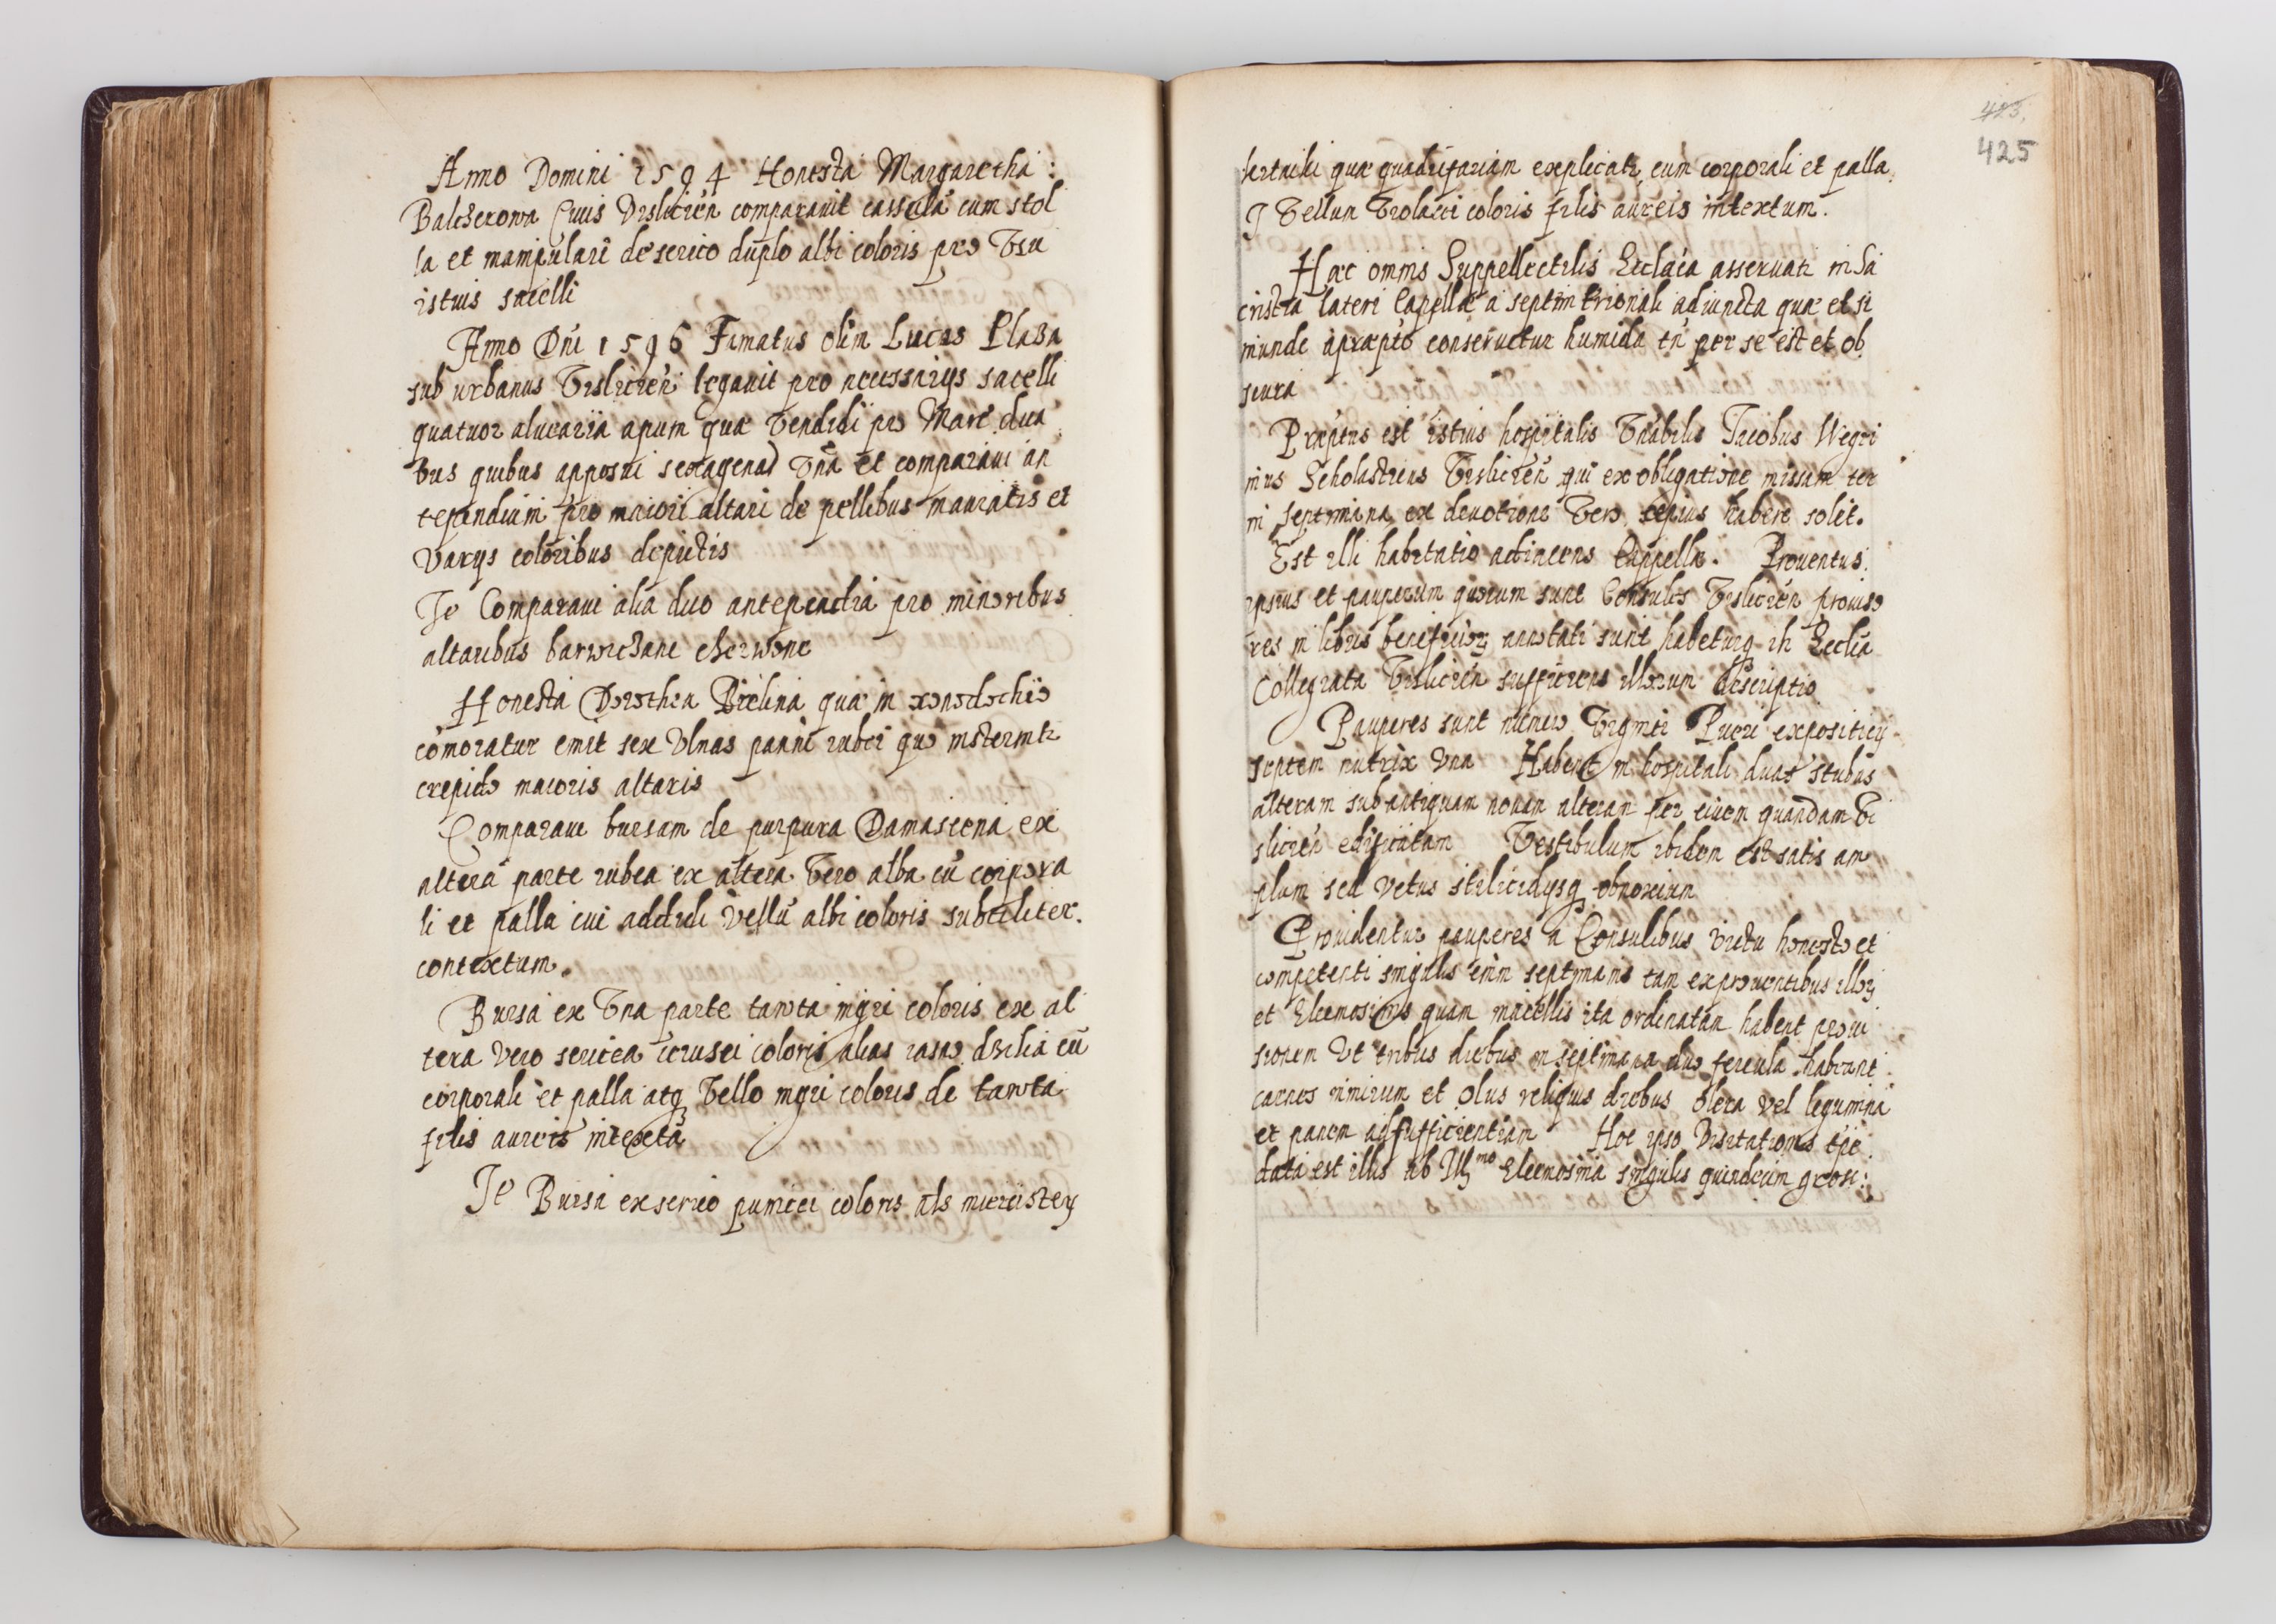 Anno Domini 1594 Honesta Margaretha
Balcerowa Civis Vislicien̄ comparavit cassulā cum stol
la et manipulari de serico duplo albi coloris pro Vsu
istius sacelli
Anno Dn̄i 1596 Famatus olim Lucas Plaza
sub urbanus Vislicien̄ legavit pro necessarijs sacelli
quatuor alvearia apum quæ Vendidi pro Marc̄ dua
bus quibus apposui sexagenā Vnā et comparavi an
tependium pro maiori altari de pellibus mauratis et
Varijs coloribus depictis
Ite Comparavi alia duo antependia pro minoribus
altaribus barwichane cherwone
Honesta Dorothea Bielina quæ in xenodochio
cōmoratur emit sex Vlnas panni rubei quo insternitr
crepido maioris altaris
Comparavi bursam de purpura Damascena ex
altera parte rubea ex altera Vero alba cū corpora
li et palla cui addidi Vellū albi coloris subtiliter
contextum.
Bursa ex Vna parte tawta nigri coloris ex al
tera Vero sericea coloris alias cū
corporali et palla atq Vello nigri coloris de tawta
filis aureis intextā
Ite Bursa ex serico punicei coloris als
quæ quadrifariam explicatr, cum corporali et palla
I Vellun Violacei coloris filis aureis intextum.
Hæc omnis Suppellectilis Ecclāca asservatr in Sa
cristia lateri Capellæ a septimtrionali adiuncta quæ et si
munde a præpto conservetur humida tn̄ per se est et ob
scura
Præptus est istius hospitalis Vn̄abilis Jacobus Wegri
nius Scholasticus Vislicien̄ qui ex obligatione missam ter
in septimana ex devotione Vero sepius habere solet.
Est illi habitatio adiacens Cappellæ. Proventus
ipsius et pauperum quorum sunt Consules Vislicien̄ proviso
res in libris beneficioꝝ annotati sunt habeturq in Ecclīa
Collegiata Vislicien̄ sufficiens illorum descriptio
Pauperes sunt numero Viginti Pueri expositicij
septem nutrix Vna Habent in hospitali duas stubas
alteram sub antiquam novam alteram per civem quandam Vi
slicien̄ edificatam Vestibulum ibidem est satis am
plum sed Vetus stilicidijsq obnoxium
Providentur pauperes a Consulibus Victu honesto et
competenti singulis enim septimanis tam ex proventibus illoꝝ
et Eleemosinis quam macellis ita ordinatam habent provi
sionem Vt tribus diebus in septimana duo fercula habeant
carnes nimirum et Olus reliquis diebus Olera Vel legumina
et panem ad sufficientiam Hoc ipso Visitationis tpe
data est illis ab Illmo Eleemosina singulis quindecim gross:
423.
425